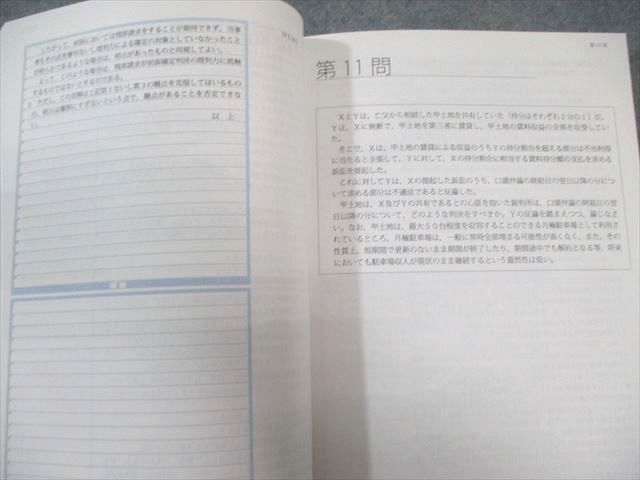 したがって、前訴においては残部請求をすることが期待できず、当事
者もその点を審判ないし既判力による確定の対象としていなかったこと
が明らかであるような場合は、明示があったものと同視してよい。
よって、このような場合は、残部請求が前訴確定判決の既判力に抵触
するものではないとするのである。
3 ただし、この見解は上記第1ないし第3の難点を克服してはいるもの
の、明示は擬制にすぎないという点で、難点があることを否定できな
い。
以 上
第10問
第11問
XとYは、亡父から相続した甲土地を共有していた（持分はそれぞれ2分の1）が、
Yは、Xに無断で、甲土地を第三者に賃貸し、甲土地の賃料収益の全部を収受してい
た。
そこで、Xは、甲土地の賃貸による収益のうちYの持分割合を超える部分は不当利得
に当たると主張して、Yに対して、Xの持分割合に相当する賃料持分額の支払を求める
訴訟を提起した。
これに対してYは、Xの提起した訴訟のうち、口頭弁論の終結日の翌日以降の分につ
いて求める部分は不適法であると反論した。
甲土地は、X及びYの共有であるとの心証を抱いた裁判所は、口頭弁論の終結日の翌
日以降の分について、どのような判決をすべきか。Yの反論を踏まえつつ、論じなさ
い。なお、甲土地は、最大50台程度を収容することのできる月極駐車場として利用さ
れているところ、月極駐車場は、一般に常時全部埋まる可能性が高くなく、また、その
性質上、短期間で更新のないまま期間が終了したり、期間途中でも解約となる等、将来
においても駐車場収入が現状のまま継続するという蓋然性は低い。